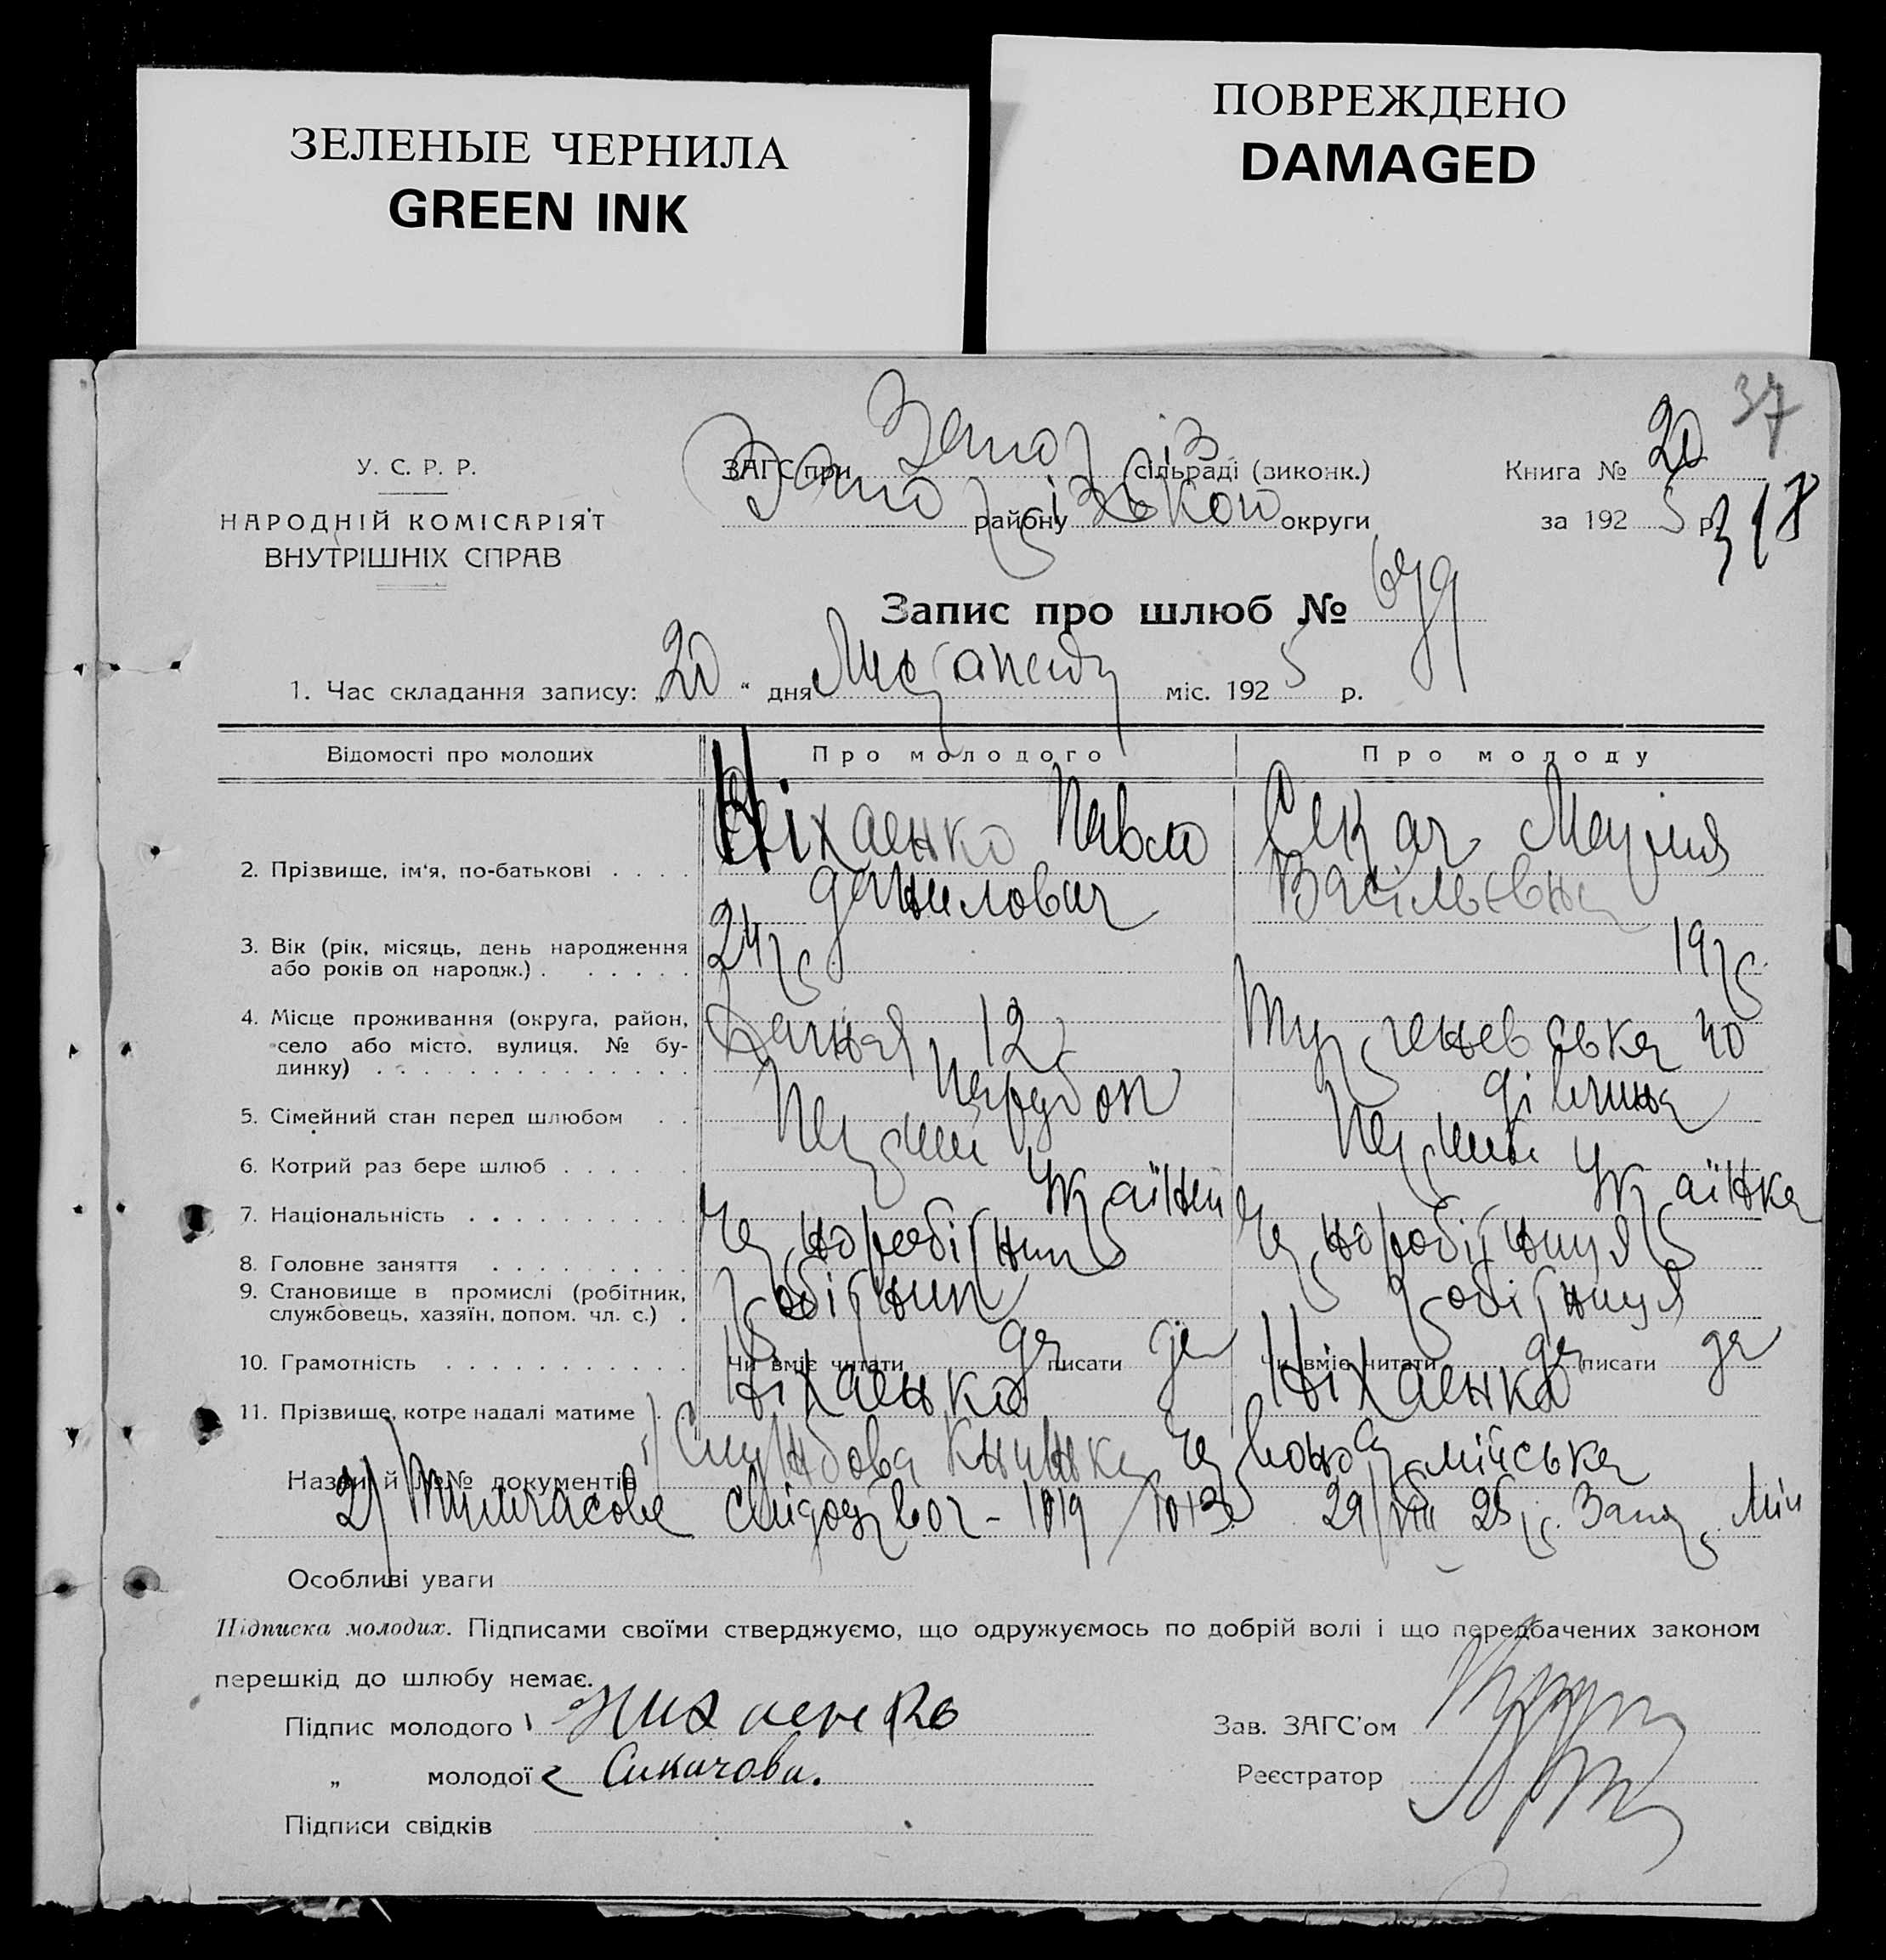 ЗЕЛЕНЫЕ ЧЕРНИЛА
GREEN INK
ПОВРЕЖДЕНО
DAMAGED
37
У. С. Р. Р.
НАРОДНІЙ КОМІСАРІЯТ
ВНУТРІШНІХ СПРАВ
ЗАГС при Запоріз сільраді (виконк.)
Запо району різькой округи
Книга № 20
за 192 5 р. 318
Запис про шлюб №
1. Час складання запису: „20“ дня Листопаду міс. 192 5 р.
Відомості про молодих
Про молодого
Про молоду
2. Прізвище, ім'я, по-батькові
Ніхаенко Павло
Данилович
Секач Марія
Васільєвна
3. Вік (рік, місяць, день народження
або років од народж.)
24 р
19 р
4. Місце проживання (округа, район,
село або місто, вулиця, № бу-
динку)
Дачная 12
Тургеневська 40
5. Сімейний стан перед шлюбом
Парубок
дівчина
6. Котрий раз бере шлюб
Перший
Перший
7. Національність
Українец
Українка
8. Головне заняття
Чернороб
Чернороб
9. Становище в промислі (робітник,
службовець, хазяїн, допом. чл. с.)
робітник
робітниця
10. Грамотність
Чи вміє читати да писати да
Чи вміє читати да писати да
11. Прізвище, котре надалі матиме
Ніхаенко
Ніхаенко
Назви й №№ документів
1) Службова книжка Червоноармійська
2) Тимчасове 1019 / 1013 29/VIII 25 р. Запор.Міл
Особливі уваги
Підписка молодих. Підписами своїми стверджуємо, що одружуємось по добрій волі і що передбачених законом
перешкід до шлюбу немає.
Підпис молодого Нихаенко
„ молодої Сикачова.
Підписи свідків
Зав. ЗАГС'ом
Реєстратор